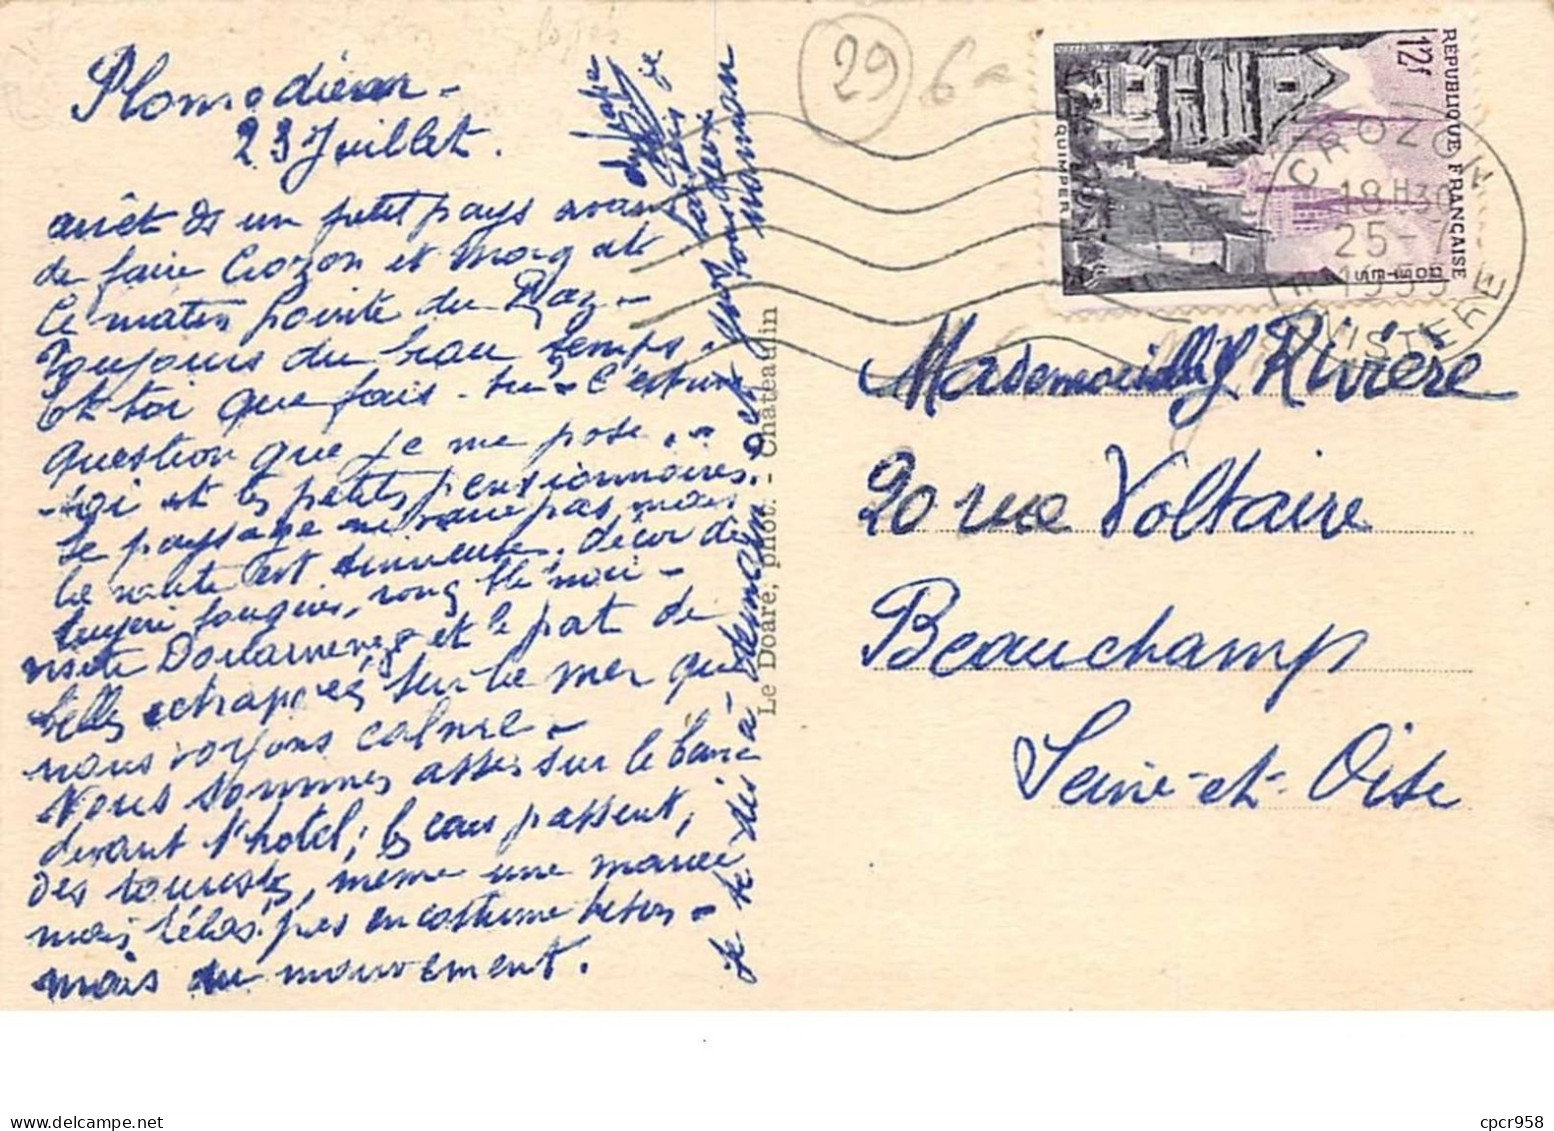 Plomodiern -
23 Juillet.
arrêt ds un petit pays avant
de faire Crozon et Morgat
Ce matin pointe du Raz -
Toujours du beau temps.
Et toi que fais-tu? C'est une
question que je me pose, -
toi et les petits pensionnaires.
Le paysage ne varie pas, mais
la route est sinueuse, décor de
bruyère fougères,
visite Douarnenez et le port de
belles échappées sur la mer que
nous voyons calme -
Nous sommes assis sur le banc
devant l'hotel; les cars passent,
des touristes, même une mariée
mais hélas! pas en costume breton -
mais du mouvement.
je te dis à demain et gros bons
baisers je
deux
maman
Le Doaré, phot. - Châteaulin
29
6
RÉPUBLIQUE FRANÇAISE
12f
QUIMPER
POSTES
CROZON
18H30
25-7
1955
FINISTERE
Mademoiselle Y Rivière
20 rue Voltaire
Beauchamp
Seine-et-Oise
cpcr958